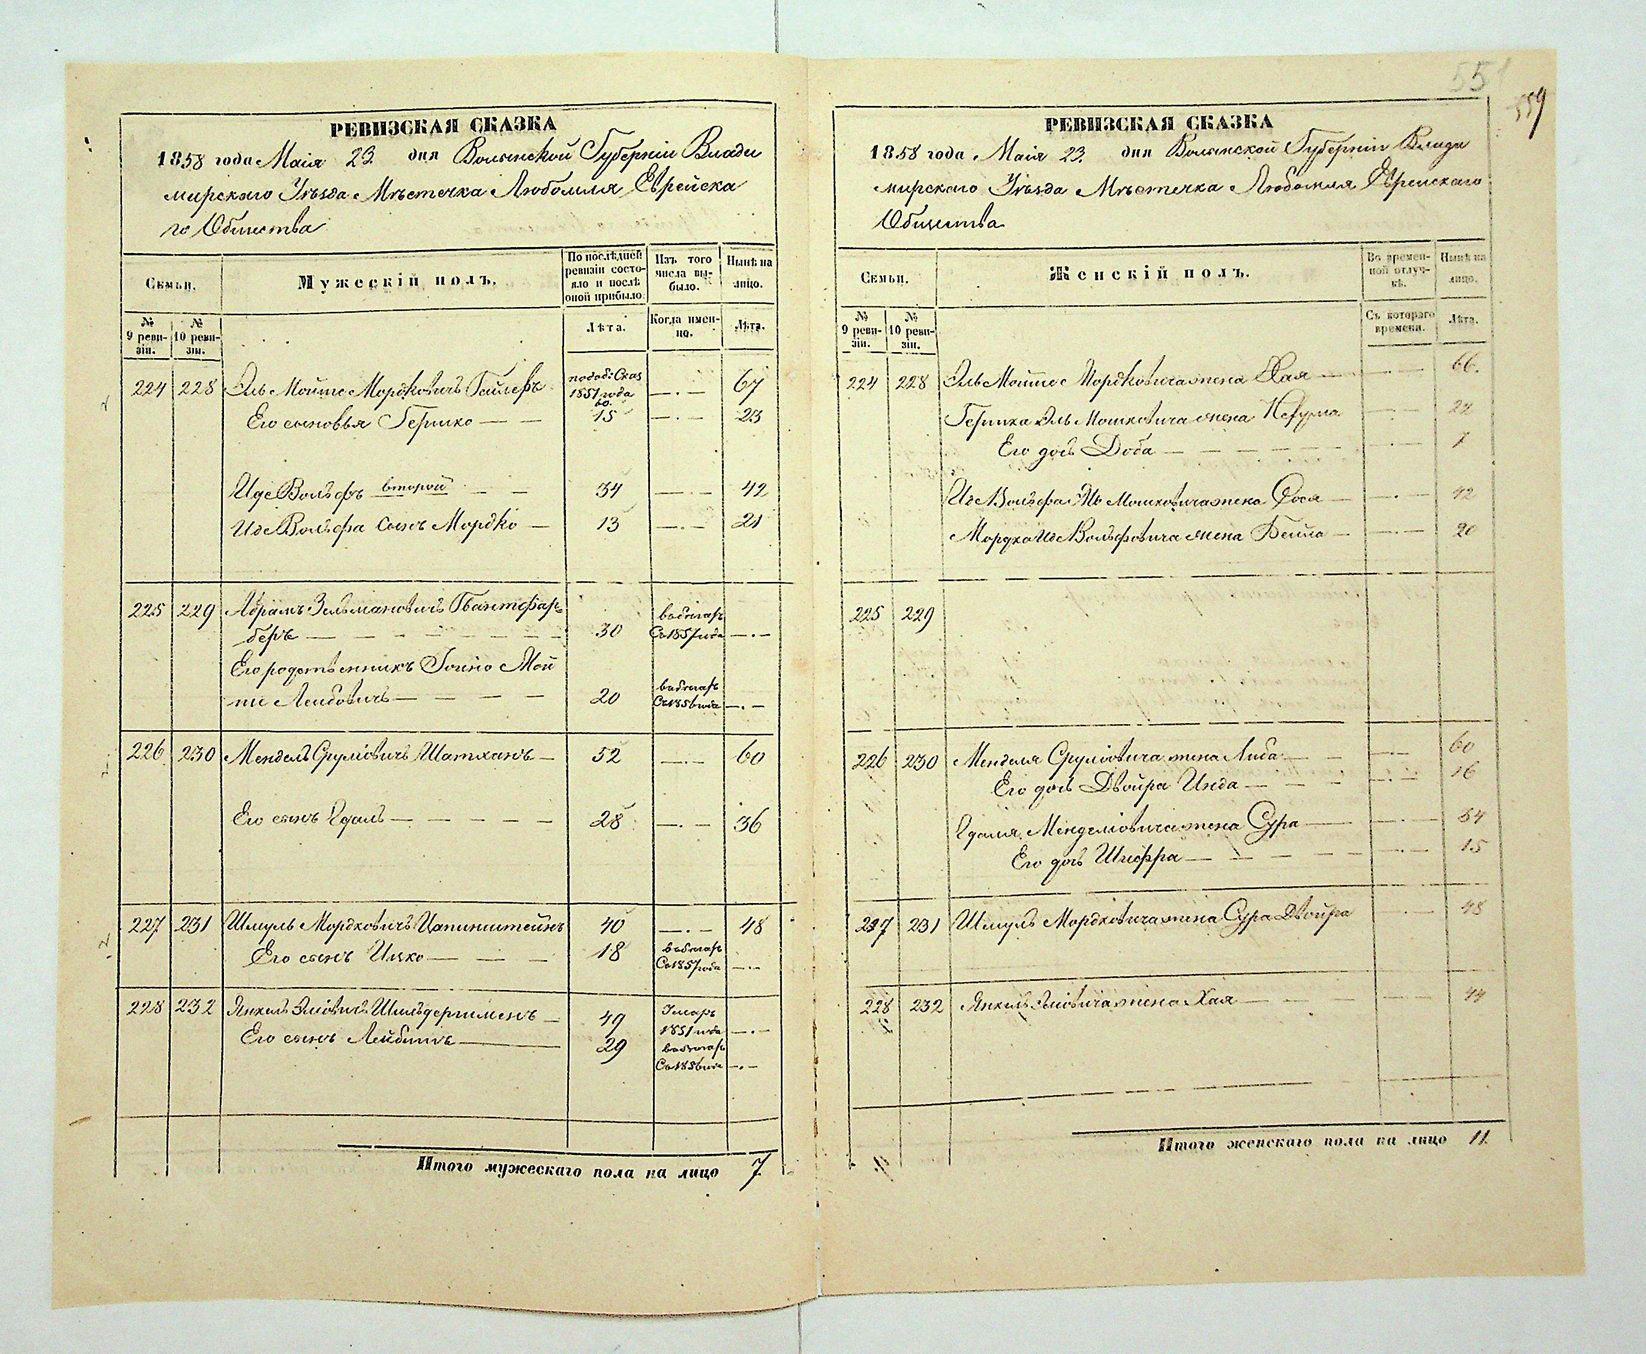 551
559
РЕВИЗСКАЯ СКАЗКА
1858 года Маія 23 дня Волынской Губерніи Влади
мирскаго Уѣзда Мѣстечка Любомля Еврейска
го Общества
Семьи.
Мужескій полъ.
По послѣдней ревизіи состояло и послѣ оной прибыло.
Изъ того числа выбыло.
Нынѣ на лицо.
№ 9 ревизіи.
№ 10 ревизіи.
Лѣта.
Когда именно.
Лѣта.
224 228 Эль Мошко Мордковичъ 1851 года 67
Его сыновья Гершко 15 23
Иде Вольфъ второй 34 42
Иде Вольфа сынъ Мордко 13 21
225 229 Абрамъ Зельмановичъ
беръ 30 въ бѣгахъ Съ 1857 года
Его родственникъ
Лейбовичъ 20 въ бѣгахъ Съ 1856 года
226 230 Мендель Срулiовичъ Шатханъ 52 60
Его сынъ Едаль 28 36
227 231 Шмуль Мордковичъ 40 48
Его сынъ Ицко 18 въ бѣгахъ Съ 1857 года
228 232 Янкель 49 Умеръ 1851 года
Его сынъ Лейбишъ 29 въ бѣгахъ Съ 1856 года
Итого мужескаго пола на лицо 7
РЕВИЗСКАЯ СКАЗКА
1858 года Маія 23 дня Волынской Губерніи Влади
мирскаго Уѣзда Мѣстечка Любомля Еврейскаго
Общества
Семьи.
Женскій полъ.
Во временной отлучкѣ.
Нынѣ на лицо.
№ 9 ревизіи.
№ 10 ревизіи.
Съ котораго времени.
Лѣта.
224 228 Эль Мошко Мордковича жена Хая 66
Гершка Эль Мошковича жена Нехума
Его дочь Доба 7
Иде Вольфа Эль Мошковича жена Рося 42
Мордка Иде Вольфовича жена Бейла 20
225 229
226 230 Менделя Срулiовича жена Либа 60
Его дочь Двойра Инда 16
Едаля Менделiовича жена Сура 34
Его дочь Шифра 15
227 231 Шмуль Мордковича жена Сура Двойра 48
228 232 Янкель жена Хая 44
Итого женскаго пола на лицо 11